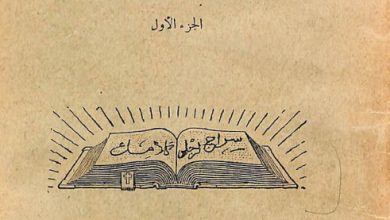 الجزء الأول
سراج لرجلي كلامك